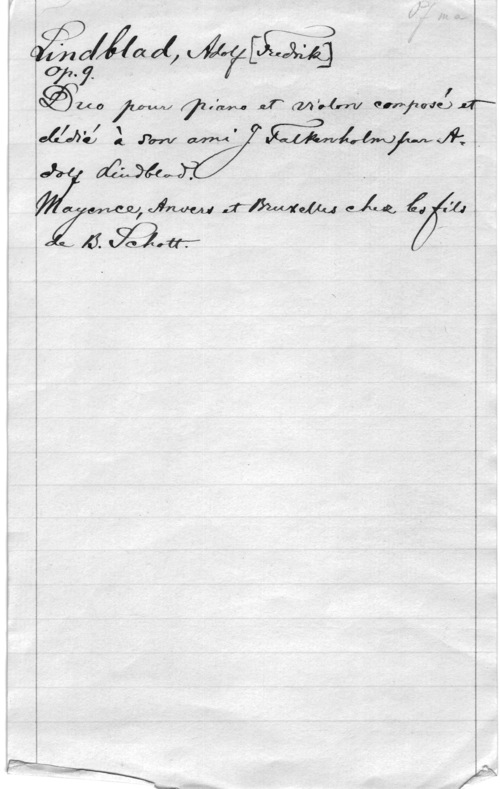 Of ma
Lindblad, Adolf [Fredrik]
Op. 9.
Duo pour piano et violon composé et
dédié à son ami J Falkenholm par A-
dolf Lindblad.
Mayence, Anvers et Bruxelles chez les fils
de B. Schott.